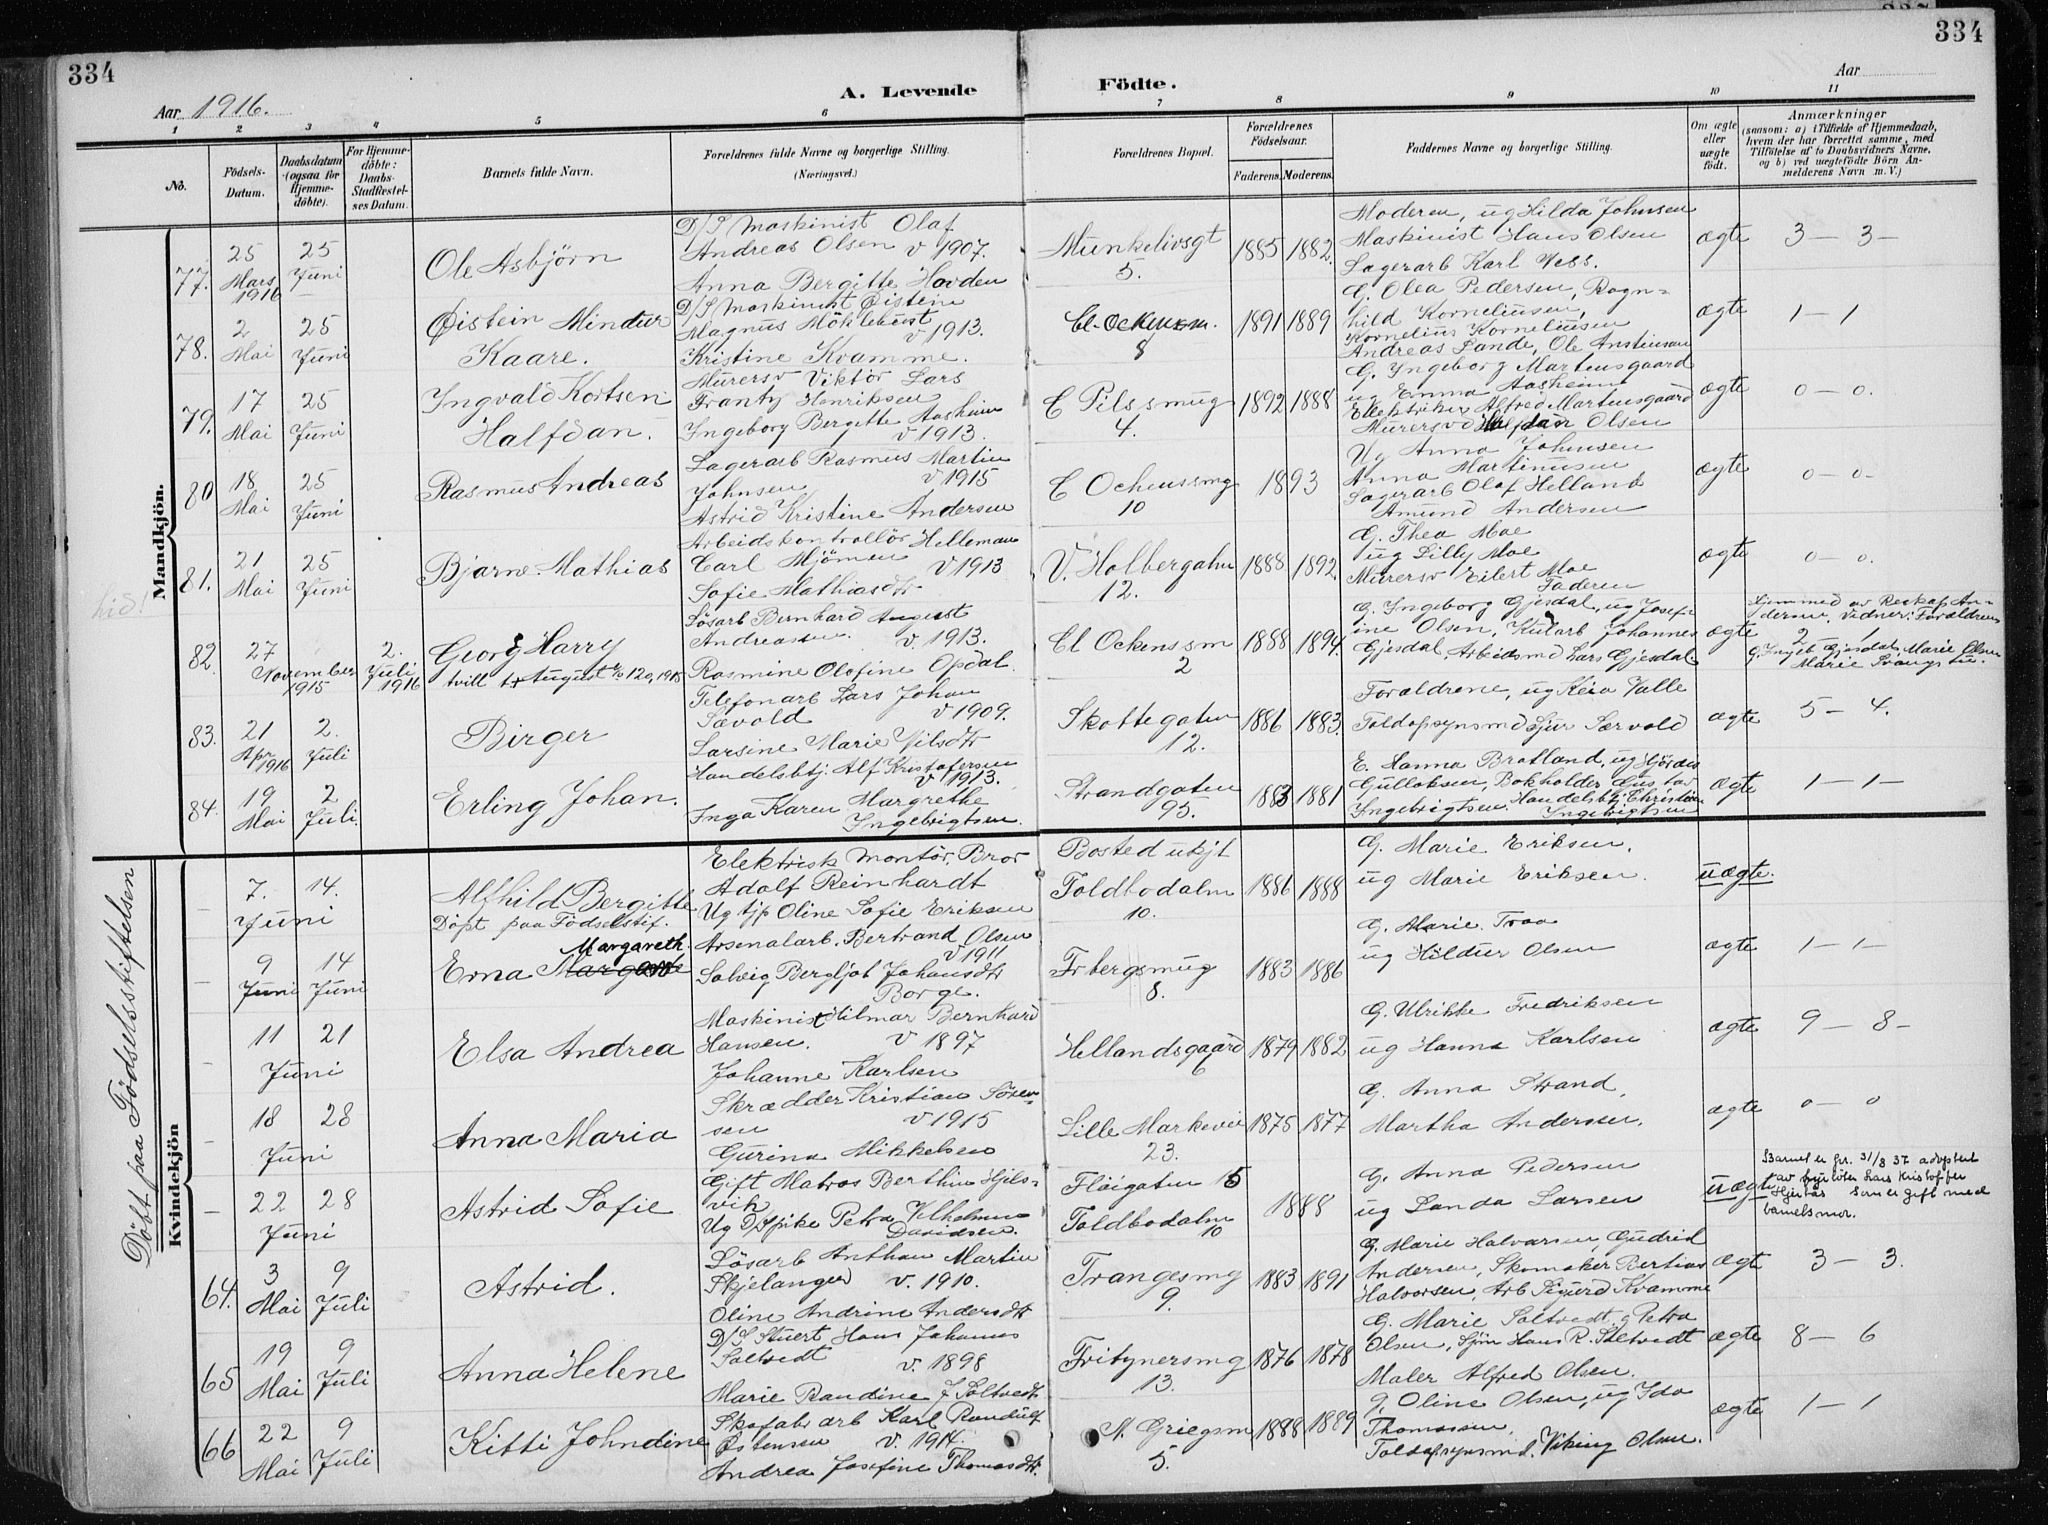 334
Aar 1916.
A. Levende
Födte.
334
Aar
1 2 3 4 5 6 7 8 9 10 11
No.
Födsels-Datum.
Daabsdatum (ogsaa for Hjemme-döbte).
For Hjemme-döbte: Daabs-Stadfæstel-ses Datum.
Barnets fulde Navn.
Forældrenes fulde Navne og borgerlige Stilling.
(Næringsvei.)
Forældrenes Bopæl.
Forældrenes Födselsaar.
Faderens. Moderens.
Faddernes Navne og borgerlige Stilling.
Om ægte eller uægte födt.
Anmærkninger
(saasom: a) i Tilfælde af Hjemmedaab,
hvem der har forrettet samme, med
Tilföielse af to Daabsvidners Navne,
og b) ved uægtefödte Börn An-
melderens Navn m. V.)
Mandkjön.
77. 25 Mars 1916 25 Juni
Ole Asbjörn
D/S Maskinist Olaf
Andreas Olsen v 1907.
Anna Bergitte Hovden
Munkelivsgt 5.
1885 1882.
Moderen, ug Hilda Johnsen
Maskinist Hans Olsen
Lagerarb Karl Ness.
ægte 3 – 3 –
78. 2 Mai 25 Juni
Øistein Mindur
Kaare.
D/S Maskinist Øistein
Magnus Möklebust
v 1913.
Kristine Kvamme.
8
1891 1889
G. Olea Pedersen, Ragn=
hild Korneliusen,
Kornelius Korneliusen
Andreas Sande, Ole
ægte 1 – 1
79. 17 Mai 25 Juni
Ingvald Kortsen
Halfdan.
Murersv Viktor Lars
Frantz Henriksen
Ingeborg Bergitte Aasheim
v 1913.
C Pilssmug 4.
1892 1888
G. Ingeborg Martensgaard
ug Emma Aasheim
Elektriker Alfred Martensgaard
Murersv Halfdan Olsen
ægte 0 – 0.
80 18 Mai 25 Juni
Rasmus Andreas
Lagerarb Rasmus Martin
Johnsen v 1915
Astrid Kristine Andersen
C Ockenssmg 10
1893
Ug Anna Johnsen
Anna Martinusen
Lagerarb Olaf Helland
Amund Andersen
ægte 0 – 0 –
81. 21 Mai 25 Juni
Bjarne Mathias
Arbeidskontrollör Helleman
Carl Mjömen v 1913
Sofie Mathiasdtr
V. Holbergalm 12.
1888 1892.
G. Thea Moe
ug Lilly Moe
Murersv Eilert Moe
Faderen
ægte 0 – 0.
82. 27 November 1915 2. Juli 1916
Georg Harry
Lösarb Bernhard August
Andreassen. v. 1913.
Rasmine Olofine Opdal.
Cl Ockenssm 2
1888 1894.
G. Ingeborg Gjesdal, ug Josef=
ine Olsen, Kularb Johannes
Gjesdal, Arbeidsmd Lars Gjesdal.
ægte 2 – 1
83. 21 Apr 1916 2. Juli
Birger
Telefonarb Lars Johan
Sævold v 1909.
Larsine Marie Nilsdtr
Skottegaten 12.
1886 1883.
Forældrene, ug Keia Valle
Toldopsynsmd Sjur Sævold
ægte 5 – 4.
84. 19 Mai 2 Juli.
Erling Johan.
Handelsbtj. Alf Kristofersen
v 1913.
Inga Karen Margrethe
Ingebrigtsen.
Strandgaten 95.
1883 1881
E. Hanna Bratland, ug Hjördis
Gulloksen, Bokholder Gustav
Ingebrigtsen. Handelsbtj. Christian
Ingebrigtsen
ægte 1 – 1 –
Döbt paa Födselsstiftelsen
Kvindekjön
– 7. 14. Juni
Alfhild Bergitte
Döpt paa Födselstif.
Elektrisk montör, Bror
Adolf Reinhardt
Ug tjp Oline Sofie Eriksen
Bosted ukjt
Toldbodalm 10.
1886 1888
G. Marie Eriksen.
ug Marie Eriksen.
uægte.
– 9 Juni 14 Juni
Margareth.
Erna Margarete
Arsenalarb. Bertrand Olsen
v 1911
Solveig Bergljot Johansdtr
Borge.
Frbergsmug 8.
1883 1886
G. Marie Traa
ug Hildur Olsen
ægte 1 – 1 –
– 11 21 Juni
Elsa Andrea
Maskinist Hilmar Bernhard
Hansen. v 1897
Johanne Karlsen
Hellandsgaard 6
1879 1882
G. Ulrikke Fredriksen
ug Hanna Karlsen
ægte 9 – 8 –
– 18 28 Juni
Anna Maria
Skrædder Kristian Sören=
sen v 1915
Gurina Mikkelsen
Lille Markevei 23.
1875 1877
G. Anna Strand,
Martha Andersen.
ægte 0 – 0
– 22 28 Juni
Astrid Sofie
Gift Matros Berthin Hjels-
vik
Ug D/Spike Petra Vilhelmine
Davidsen.
Flöigaten 15
Toldbodalm 10
1888
G. Anna Pedersen
ug Landa Larsen
uægte
Barnet er fr. 31/8 37 adoptert
av fyrböter Lars Kristoffer
Hjertås Som er gift med
barnets mor.
64. 3 Mai 9 Juli
Astrid.
Lösarb Anthon Martin
Skjelanger v. 1910.
Oline Andrine Andersdtr
Trangesmg 9.
1883 1891
G. Marie Halvorsen, Gudrid
Andersen, Skomaker Bertias
Halvorsen, Arb Sigurd Kvamme
ægt 3 – 3.
65 19 Mai 9 Juli
Anna Helene
D/S Stuert Hans Johannes
Saltvedt v. 1898
Marie Randine J. Saltvedt
Fritznersmg 13.
1876 1878
G. Marie Saltvedt, g Petra
Olsen, Sjöm Hans R. Saltvedt
Maler Alfred Olsen.
ægte 8 – 6
66 22 Mai 9 Juli
Kitti Johndine
Skofabr arb Karl Randulf
Østensen v. 1914.
Andrea Josefine Thomasdtr.
N. Griegsm 5.
1888 1889
g. Oline Olsen, ug Ida
Thomassen,
Toldopsynsmd. Viking Olsen.
ægte 1 – 1